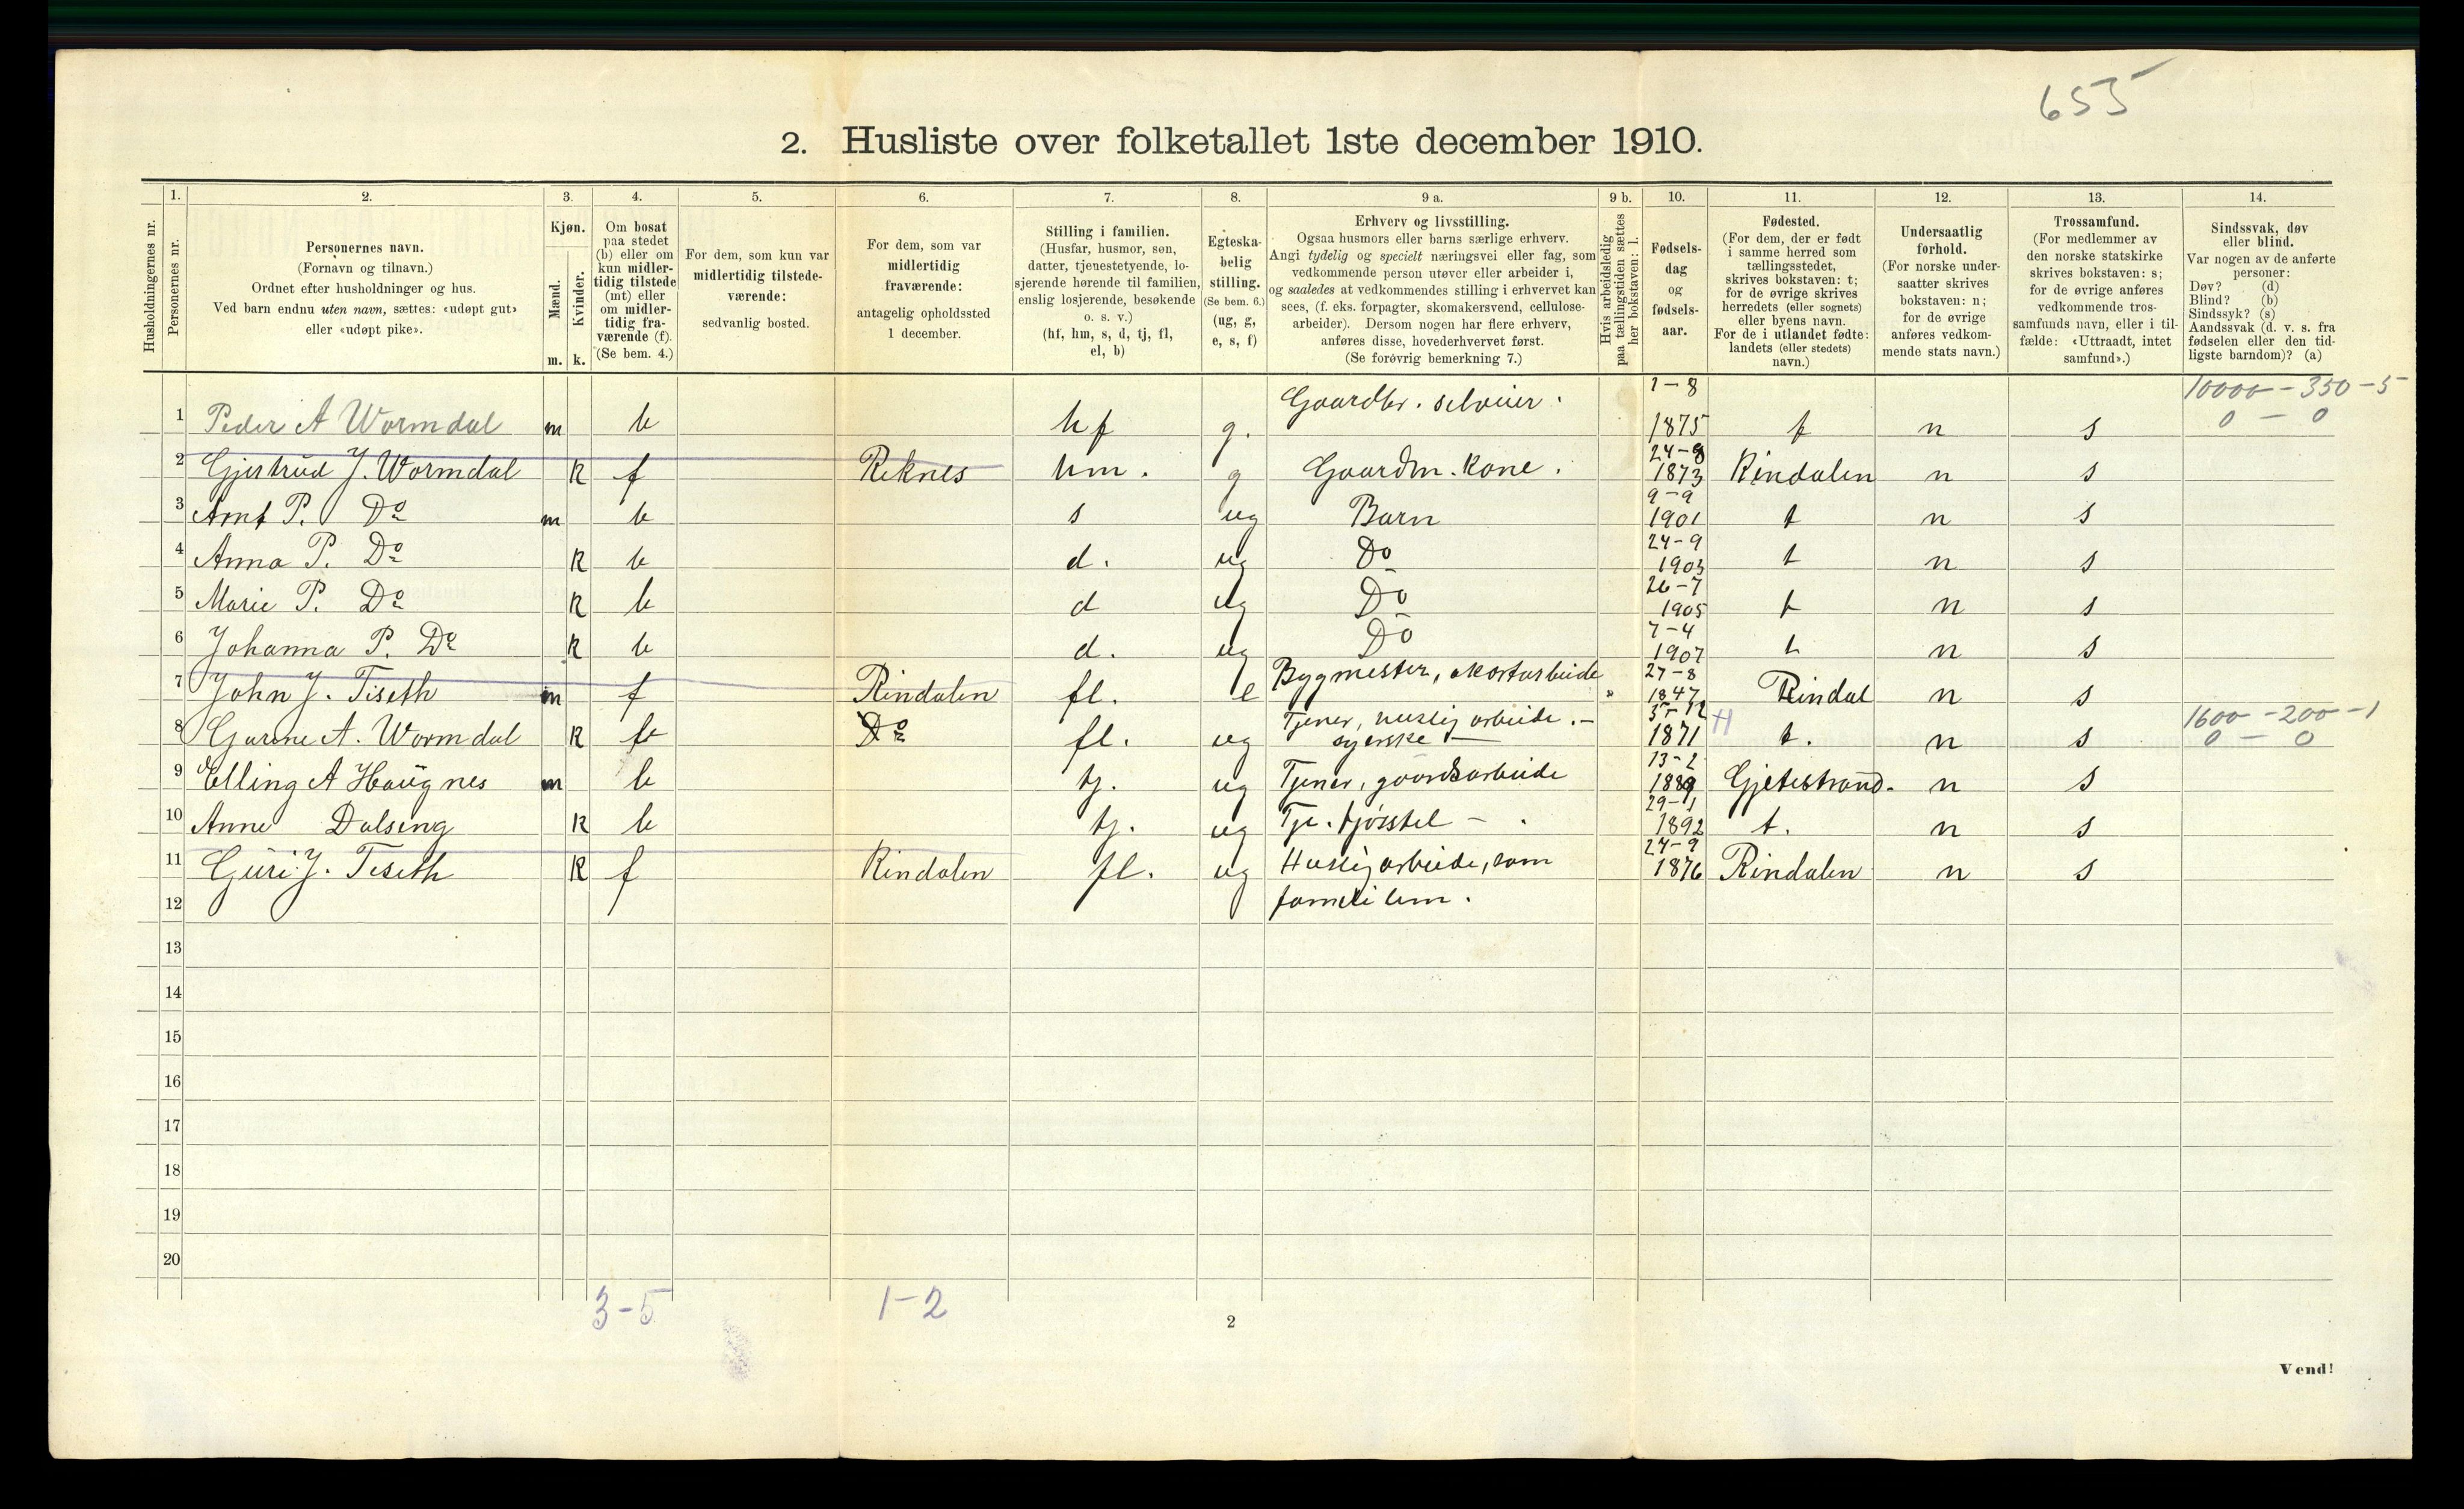 655
2. Husliste over folketallet 1ste december 1910.
Husholdningernes nr.
1. Personernes nr.
2. Personernes navn.
(Fornavn og tilnavn.)
Ordnet efter husholdninger og hus.
Ved barn endnu uten navn, sættes: «udøpt gut»
eller «udøpt pike».
3. Kjøn.
Mænd. m.
Kvinder. k.
4. Om bosat
paa stedet
(b) eller om
kun midler-
tidig tilstede
(mt) eller
om midler-
tidig fra-
værende (f).
(Se bem. 4.)
5. For dem, som kun var
midlertidig tilstede-
værende:
sedvanlig bosted.
6. For dem, som var
midlertidig
fraværende:
antagelig opholdssted
1 december.
7. Stilling i familien.
(Husfar, husmor, søn,
datter, tjenestetyende, lo-
sjerende hørende til familien,
enslig losjerende, besøkende
o. s. v.)
(hf, hm, s, d, tj, fl,
el, b)
8. Egteska-
belig
stilling.
(Se bem. 6.)
(ug, g,
e, s, f)
9 a. Erhverv og livsstilling.
Ogsaa husmors eller barns særlige erhverv.
Angi tydelig og specielt næringsvei eller fag, som
vedkommende person utøver eller arbeider i,
og saaledes at vedkommendes stilling i erhvervet kan
sees, (f. eks. forpagter, skomakersvend, cellulose-
arbeider). Dersom nogen har flere erhverv,
anføres disse, hovederhvervet først.
(Se forøvrig bemerkning 7.)
9 b. Hvis arbeidsledig
paa tællingstiden sættes
her bokstaven: l.
10. Fødsels-
dag
og
fødsels-
aar.
11. Fødested.
(For dem, der er født
i samme herred som
tællingsstedet,
skrives bokstaven: t;
for de øvrige skrives
herredets (eller sognets)
eller byens navn.
For de i utlandet fødte:
landets (eller stedets)
navn.)
12. Undersaatlig
forhold.
(For norske under-
saatter skrives
bokstaven: n;
for de øvrige
anføres vedkom-
mende stats navn.)
13. Trossamfund.
(For medlemmer av
den norske statskirke
skrives bokstaven: s;
for de øvrige anføres
vedkommende tros-
samfunds navn, eller i til-
fælde: «Uttraadt, intet
samfund».)
14. Sindssvak, døv
eller blind.
Var nogen av de anførte
personer:
Døv? (d)
Blind? (b)
Sindssyk? (s)
Aandssvak (d. v. s. fra
fødselen eller den tid-
ligste barndom)? (a)
1 Peder A Wormdal m b hf g. Gaardbr. selveier. 1-8 1875 t n s 10000-350-5 0-0
2 Gjertrud J. Wormdal k f Reknes hm. g Gaardm. kone. 24-8 1873 Rindalen n s
3 Arnt P. Do m b s ug Barn 9-9 1901 t n s
4 Anna P. Do k b d. ug Do 24-9 1903 t n s
5 Marie P. Do k b d ug Do 26-7 1905 t n s
6 Johanna P. Do k b d. ug Do 7-4 1907 t n s
7 John J. Tiseth m f Rindalen fl. e Bygmester, akortarbeide " 27-8 1847 Rindal n s
8 Gurine A. Wormdal k Do fl. ug Tjener, huslig arbeide.- syerske 1871 t. n s 1600-200-1 0-0
9 Elling A Haugnes m b tj. ug Tjener, gaardsarbeide 13-2 1889 Gjetestrand. n s
10 Anne Dalseng k b tj. ug Tje. fjøsstel - . 29-1 1892 t. n s
11 Guri J. Tiseth k f Rindalen fl. ug Huslig arbeide, som 24-9 1876 Rindalen n s
12 famililem.
13
14
15
16
17
18
19
20
3-5 1-2
2
Vend!